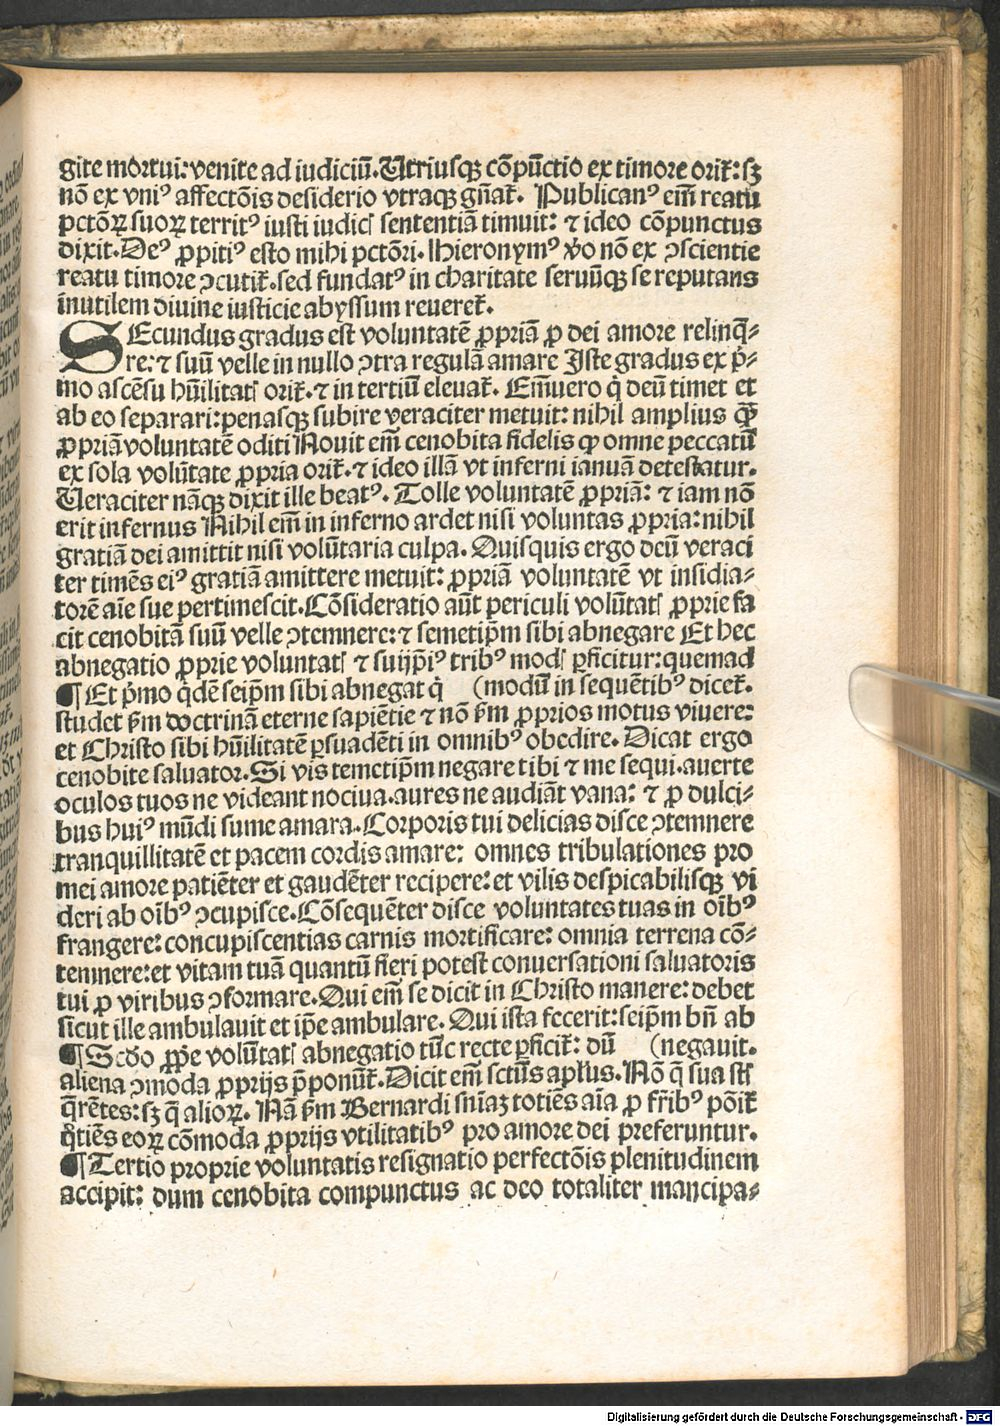 gite mortui: venite ad iudiciū. Utriusqꝫ cōpūctio ex timore orit᷑: sꝫ
nō ex vniꝰ affectōis desiderio vtraqꝫ gn̄at᷑. Publicanꝰ em̄ reatu
pctōꝝ suoꝝ territꝰ iusti iudicꝭ sententiā timuit: ⁊ ideo cōpunctus
dixit. Deꝰ ꝓpitiꝰ esto mihi pctōri. Hieronymꝰ v̓o nō ex ↄscientie
reatu timore ↄcutit᷑. sed fundatꝰ in charitate seruūqꝫ se reputans
inutilem diuine iusticie abyssum reueret᷑.
SEcundus gradus est voluntatē ꝓpriā ꝓ dei amore relinq̄-
re: ⁊ suū velle in nullo ↄtra regulā amare Iste gradus ex p̓-
mo ascēsu hūilitatꝭ orit᷑. ⁊ in tertiū eleuat᷑. Em̄uero q̓ deū timet et
ab eo separari: penasqꝫ subire veraciter metuit: nihil amplius qꝫ̄
ꝓpriā voluntatē oditi Nouit em̄ cenobita fidelis ꝙ omne peccatū
ex sola volūtate ꝓpria orit᷑. ⁊ ideo illā vt inferni ianuā detestatur.
Ueraciter nāqꝫ dixit ille beatꝰ. Tolle voluntatē ꝓpriā: ⁊ iam nō
erit infernus Nihil em̄ in inferno ardet nisi voluntas ꝓpria: nihil
gratiā dei amittit nisi volūtaria culpa. Quisquis ergo deū veraci
ter timēs eiꝰ gratiā amittere metuit: ꝓpriā voluntatē vt insidia-
torē aīe sue pertimescit. Cōsideratio aūt periculi volūtatꝭ ꝓprie fa
cit cenobitā suū velle ↄtemnere: ⁊ semetip̄m sibi abnegare Et hec
abnegatio ꝓprie voluntatꝭ ⁊ suijp̄iꝰ tribꝰ modꝭ ꝑficitur: quemad
¶ Et p̓mo q̓dē seip̄m sibi abnegat q̓ (modū in sequētibꝰ dicet᷑.
studet ẜm doctrinā eterne sapiētie ⁊ nō ẜm ꝓprios motus viuere:
et Christo sibi hūilitatē ꝑsuadēti in omnibꝰ obedire. Dicat ergo
cenobite saluator. Si vis temetip̄m negare tibi ⁊ me sequi. auerte
oculos tuos ne videant nociua. aures ne audiāt vana: ⁊ ꝓ dulci-
bus huiꝰ mūdi sume amara. Corporis tui delicias disce ↄtemnere
tranquillitatē et pacem cordis amare: omnes tribulationes pro
mei amore patiēter et gaudēter recipere: et vilis despicabilisqꝫ vi
deri ab oīb⁹ ↄcupisce. Cōsequēter disce voluntates tuas in oīb⁹
frangere: concupiscentias carnis mortificare: omnia terrena cō-
temnere: et vitam tuā quantū fieri potest conuersationi saluatoris
tui ꝓ viribus ↄformare. Qui em̄ se dicit in Christo manere: debet
sicut ille ambulauit et ip̄e ambulare. Qui ista fecerit: seip̄m bn̄ ab
¶ Scd̓o ꝓp̄e volūtatꝭ abnegatio tūc recte ꝑficit᷑: dū (negauit.
aliena ↄmoda ꝓprijs p̄ponūt᷑. Dicit em̄ sctūs apl̓us. Nō q̄ sua st̄
q̄rētes: sꝫ q̄ alioꝝ. Nā ẜm Bernardi sn̄iaꝫ totiēs aīa ꝓ fr̄ibꝰ pōit᷑
q̓tiēs eoꝝ cōmoda ꝓprijs vtilitatibꝰ pro amore dei preferuntur.
¶ Tertio proprie voluntatis resignatio perfectōis plenitudinem
accipit: dum cenobita compunctus ac deo totaliter mancipa-
Digitalisierung gefördert durch die Deutsche Forschungsgemeinschaft - DFG